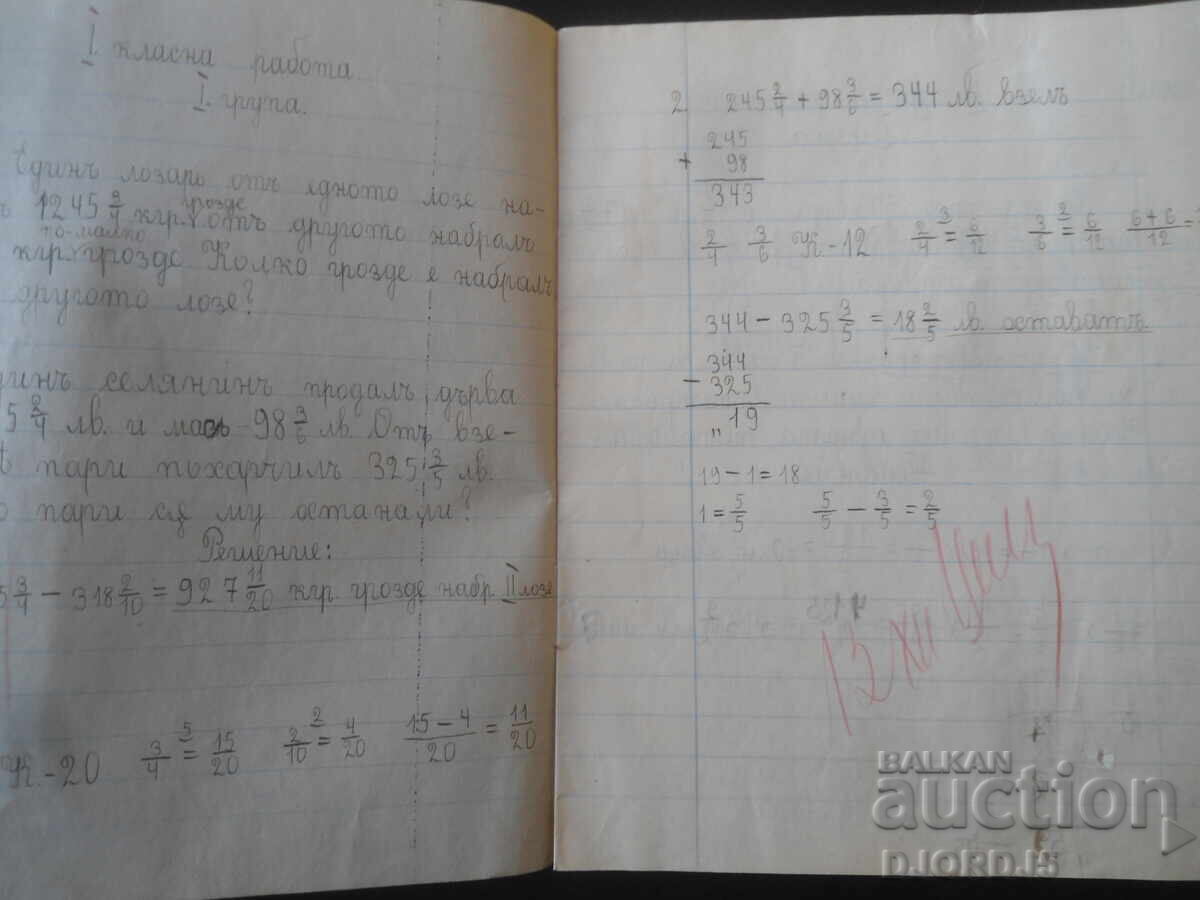 I. класна работа
I. група.
Единъ лозарь отъ едното лозе на-
ъ 1245 3/4 кгр. грозде отъ другото набралъ
по-малко
кгр. грозде Колко грозде е набралъ
другото лозе?
динъ селянинъ продалъ дърва
5 2/4 лв. и масъ 98 3/6 лв. Отъ взе-
парги похарчилъ 325 3/5 лв.
о парги сѫ му останали?
Решение:
5 3/4 — 318 2/10 = 927 11/20 кгр. грозде набр. II лозе
К.-20 3/4 5= 15/20 2/10 2= 4/20 15-4/20 = 11/20
2. 245 2/4 + 98 3/6 = 344 лв. взелъ
245
+ 98
343
2/4 3/6 К-12 2/4 3= 6/12 3/6 2= 6/12 6+6/12 =
344 — 325 3/5 = 18 2/5 лв. оставатъ
344
— 325
„ 19
19 — 1 = 18
1 = 5/5 5/5 — 3/5 = 2/5
13 XII
BALKAN
auction
D.JORD.J5